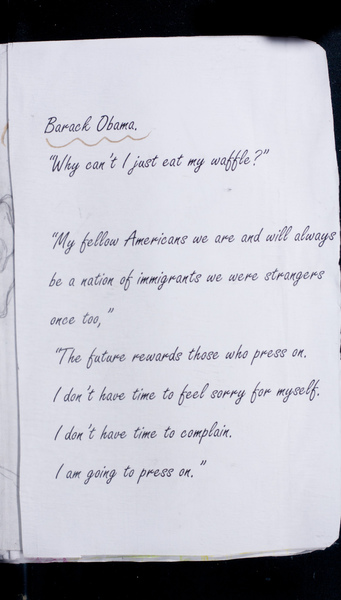 Barack Obama.
"Why can't I just eat my waffle?"
"My fellow Americans we are and will always
be a nation of immigrants we were strangers
once too,"
"The future rewards those who press on.
I don't have time to feel sorry for myself.
I don't have time to complain.
I am going to press on."